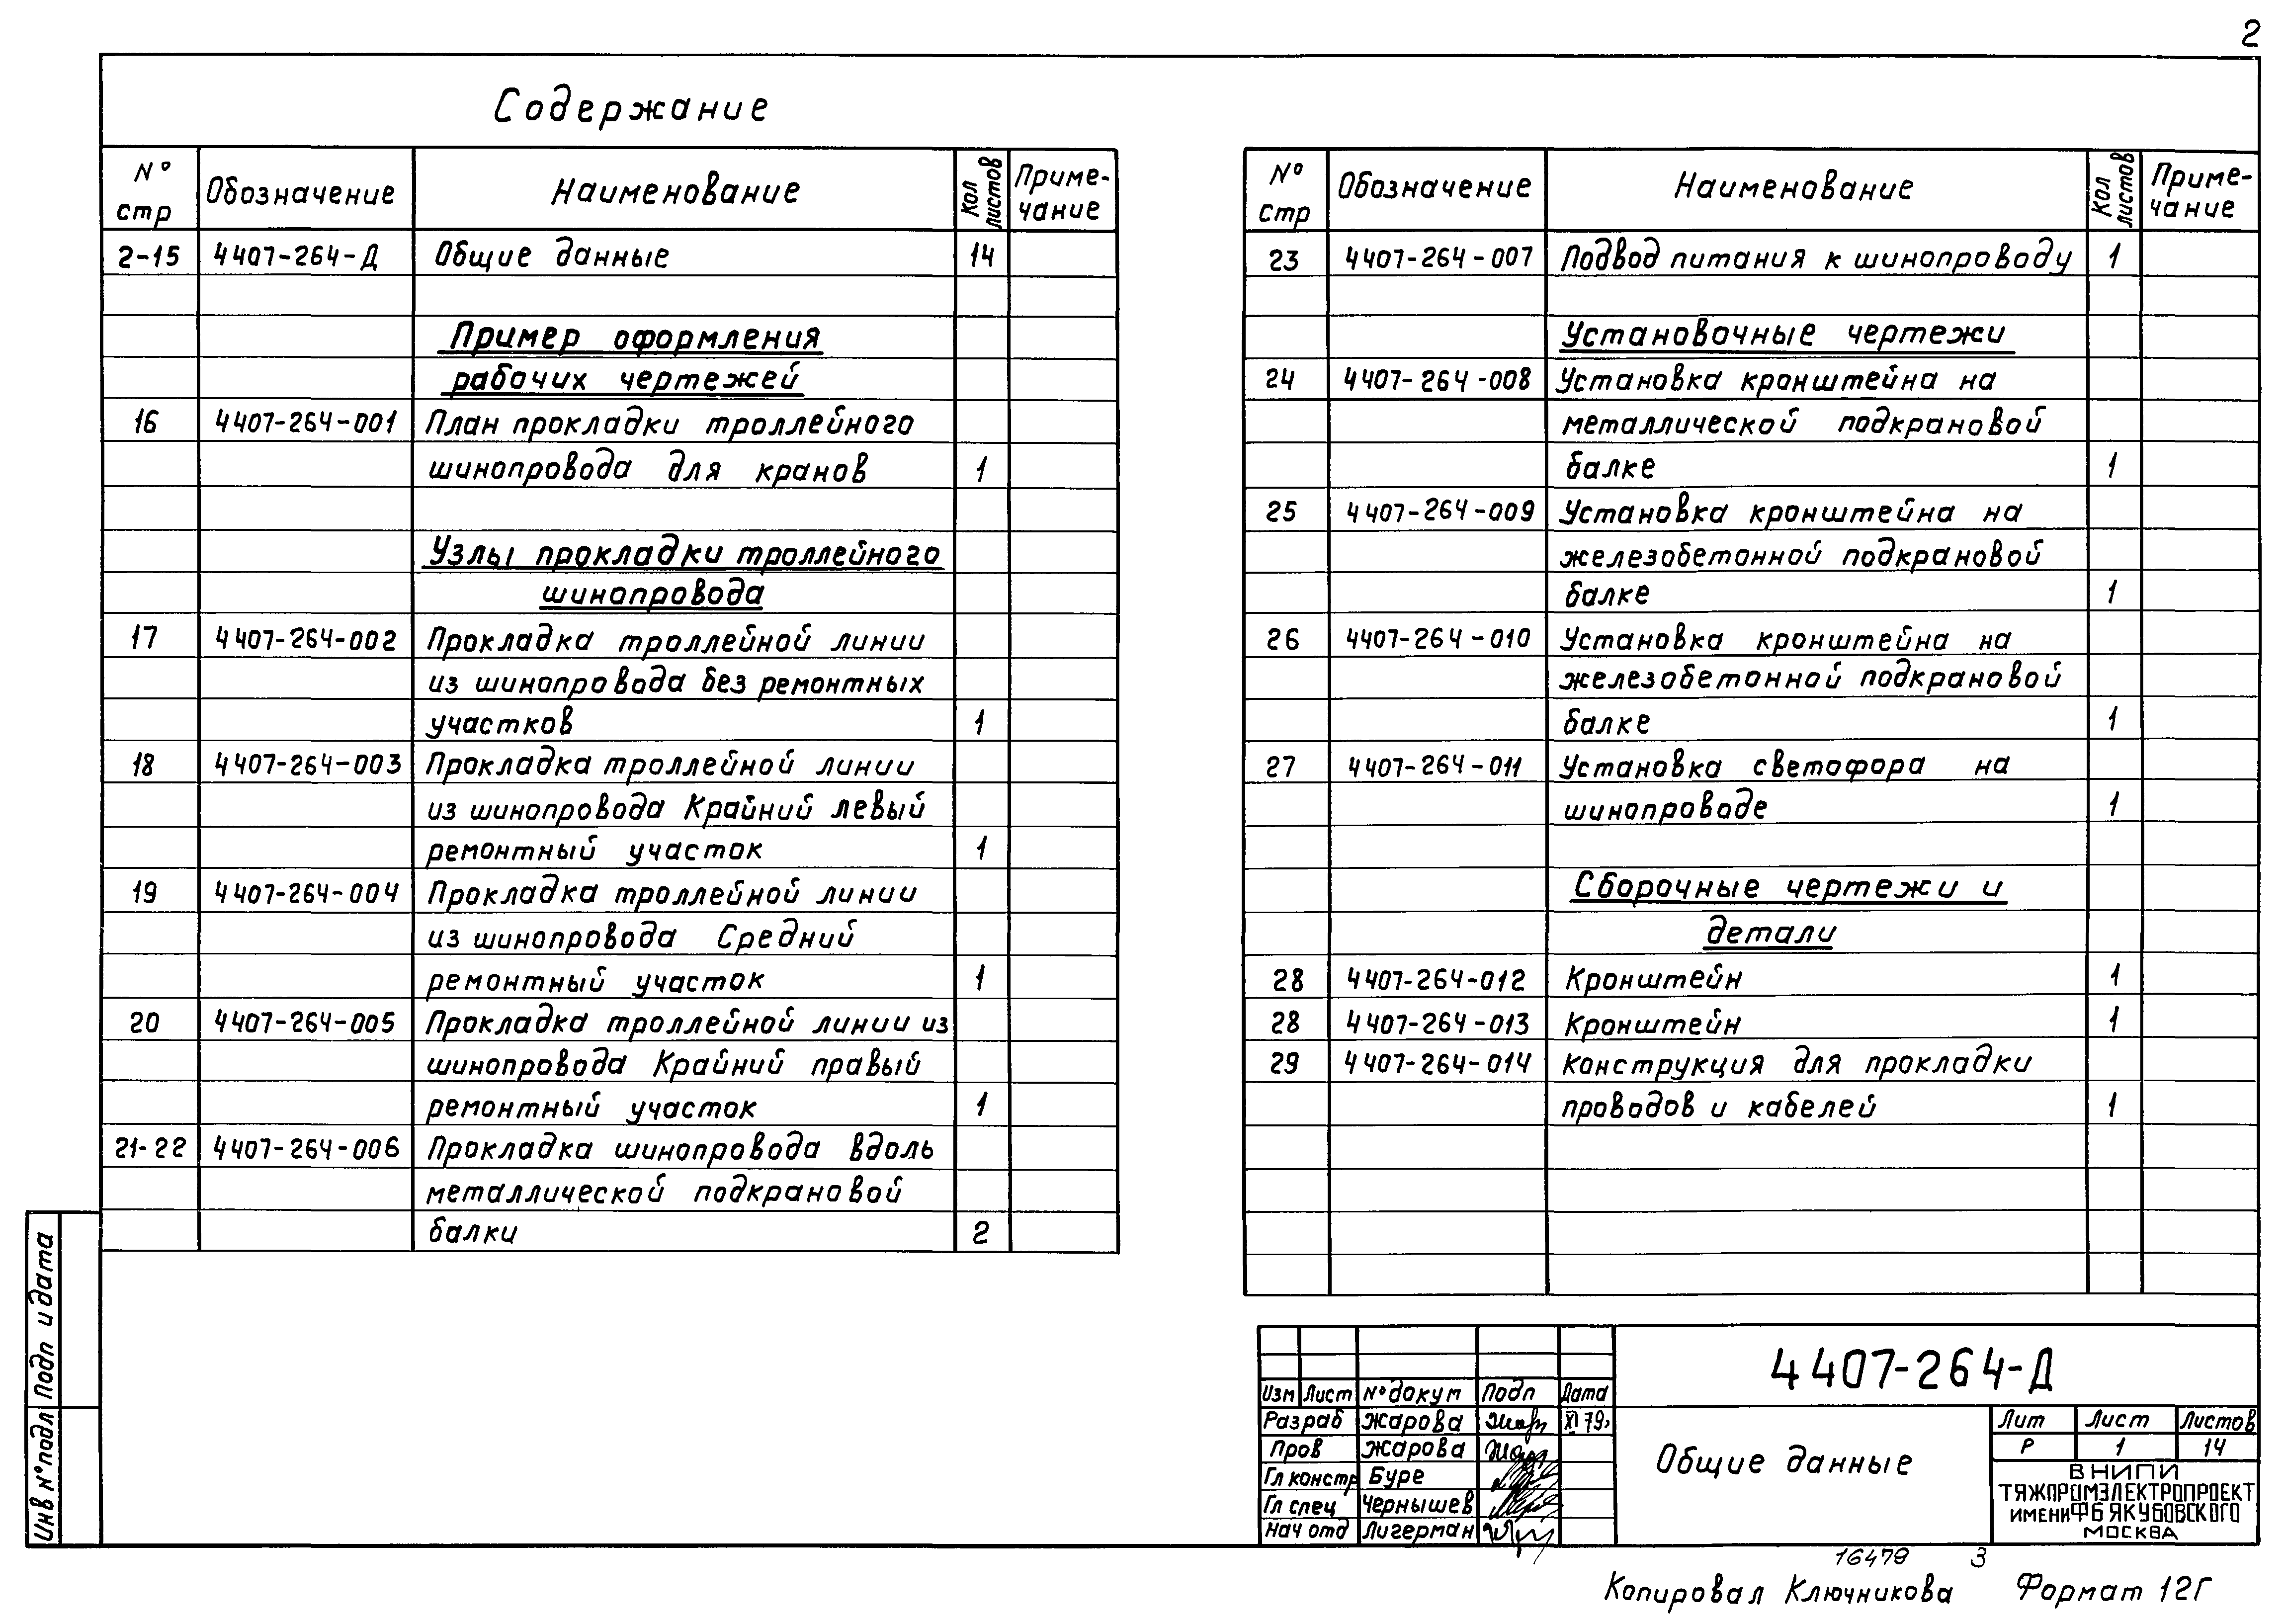 2
Содержание
№ стр Обозначение Наименование Кол листов Приме-чание
2-15 4407-264-Д Общие данные 14
Пример оформления
рабочих чертежей
16 4407-264-001 План прокладки троллейного
шинопровода для кранов 1
Узлы прокладки троллейного
шинопровода
17 4407-264-002 Прокладка троллейной линии
из шинопровода без ремонтных
участков 1
18 4407-264-003 Прокладка троллейной линии
из шинопровода Крайний левый
ремонтный участок 1
19 4407-264-004 Прокладка троллейной линии
из шинопровода Средний
ремонтный участок 1
20 4407-264-005 Прокладка троллейной линии из
шинопровода Крайний правый
ремонтный участок 1
21-22 4407-264-006 Прокладка шинопровода вдоль
металлической подкрановой
балки 2
№ стр Обозначение Наименование Кол листов Приме-чание
23 4407-264-007 Подвод питания к шинопроводу 1
Установочные чертежи
24 4407-264-008 Установка кронштейна на
металлической подкрановой
балке 1
25 4407-264-009 Установка кронштейна на
железобетонной подкрановой
балке 1
26 4407-264-010 Установка кронштейна на
железобетонной подкрановой
балке 1
27 4407-264-011 Установка светофора на
шинопроводе 1
Сборочные чертежи и
детали
28 4407-264-012 Кронштейн 1
28 4407-264-013 Кронштейн 1
29 4407-264-014 Конструкция для прокладки
проводов и кабелей 1
Инв № подл Подп и дата
4407-264-Д
Изм Лист № докум Подп Дата
Разраб Жарова XI 79г
Пров Жарова
Гл констр Буре
Гл спец Чернышев
Нач отд Лигерман
Общие данные
Лит Лист Листов
Р 1 14
ВНИПИ
ТЯЖПРОМЭЛЕКТРОПРОЕКТ
ИМЕНИ Ф Б ЯКУБОВСКОГО
МОСКВА
16479 3
Копировал Ключникова Формат 12Г